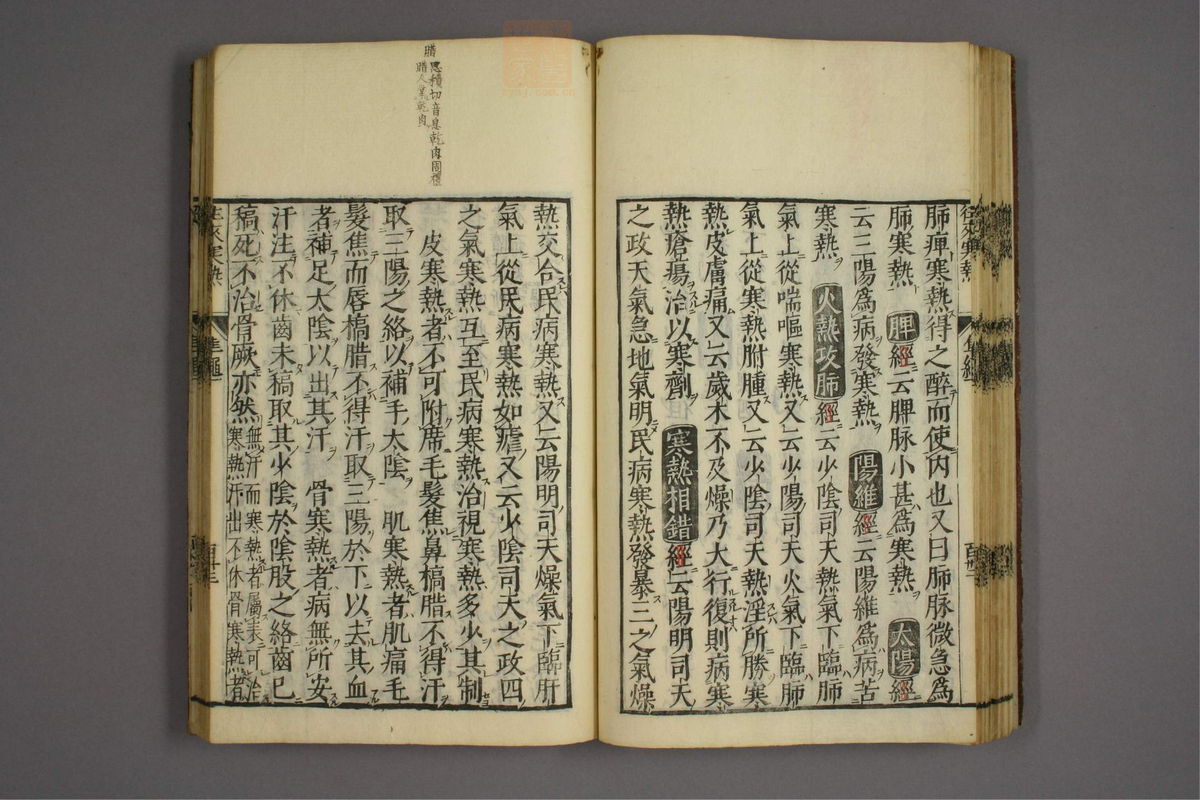 肺痺寒熱得之醉而使內也又曰肺脉微急爲
肺寒熱 脾經云脾脉小甚爲寒熱 太陽經
云三陽爲病發寒熱 陽維經云陽維爲病苦
寒熱 火熱攻肺經云少陰司天熱氣下臨肺
氣上從喘嘔寒熱又云少陽司天火氣下臨肺
氣上從寒熱胕腫又云少陰司天熱淫所勝寒
熱皮膚痛又云歲木不及燥乃大行復則病寒
熱瘡瘍治以寒劑 寒熱相錯經云陽明司天
之政天氣急地氣明民病寒熱發暴三之氣燥
熱交合民病寒熱又云陽明司天燥氣下臨肝
氣上從民病寒熱如瘧又云少陰司天之政四
之氣寒熱互至民病寒熱治視寒熱多少其制
皮寒熱者不可附席毛髮焦鼻槁腊不得汗
取三陽之絡以補手太陰 肌寒熱者肌痛毛
髮焦而唇槁腊不得汗取三陽於下以去其血
者補足太陰以出其汗 骨寒熱者病無所安
汗注不休齒未槁取其少陰於陰股之絡齒已
槁死不治骨厥亦然 無汗而寒熱者屬表可治
寒熱汗出不休骨寒熱者
腊 思積切音息乾肉周禮
腊人掌乾肉